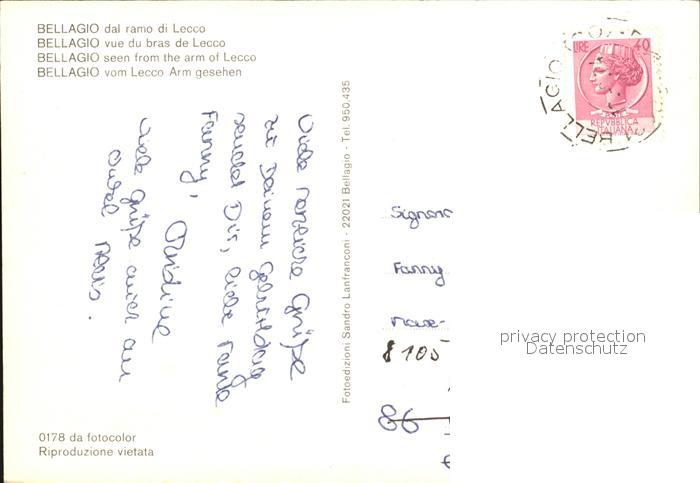 BELLAGIO dal ramo di Lecco
BELLAGIO vue du bras de Lecco
BELLAGIO seen from the arm of Lecco
BELLAGIO vom Lecco Arm gesehen
LIRE 40
REPVBBLICA
ITALIANA
BELLAGIO
Viele herzliche Grüße
zu Deinem Geburtstag
sendet Dir, liebe Tante
Fanny,
Viele Grüße auch an
Onkel
Fotoedizioni Sandro Lanfranconi - 22021 Bellagio - Tel. 950.435
Signora
Fanny
8105
86
privacy protection
Datenschutz
0178 da fotocolor
Riproduzione vietata